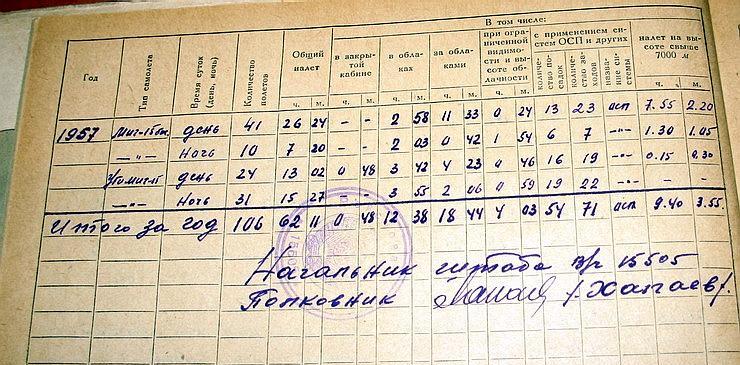 В том числе:
Год Тип самолета Время суток (день, ночь) Количество полетов Общий налет в закрытой кабине в облаках за облаками при ограниченной видимости и высоте облачности с применением систем ОСП и других налет на высоте свыше 7000 м
количество посадок количество заходов название системы
ч. м. ч. м. ч. м. ч. м. ч. м. ч. м.
1957 Миг-15бис день 41 26 24 - - 2 58 11 33 0 24 13 23 осп 7.55 2.20
—„— Ночь 10 7 20 - - 2 03 0 42 1 54 6 7 —„— 1.30 1.05
Ути миг-15 день 24 13 02 0 48 3 42 4 23 0 46 16 19 —„— 0.15 0.30
—„— Ночь 31 15 27 - - 3 55 2 06 0 59 19 22 —„— - -
Итого за год 106 62 11 0 48 12 38 18 44 4 03 54 71 осп 9.40 3.55
Начальник штаба в/ч 15505
Полковник /Хапаев/.